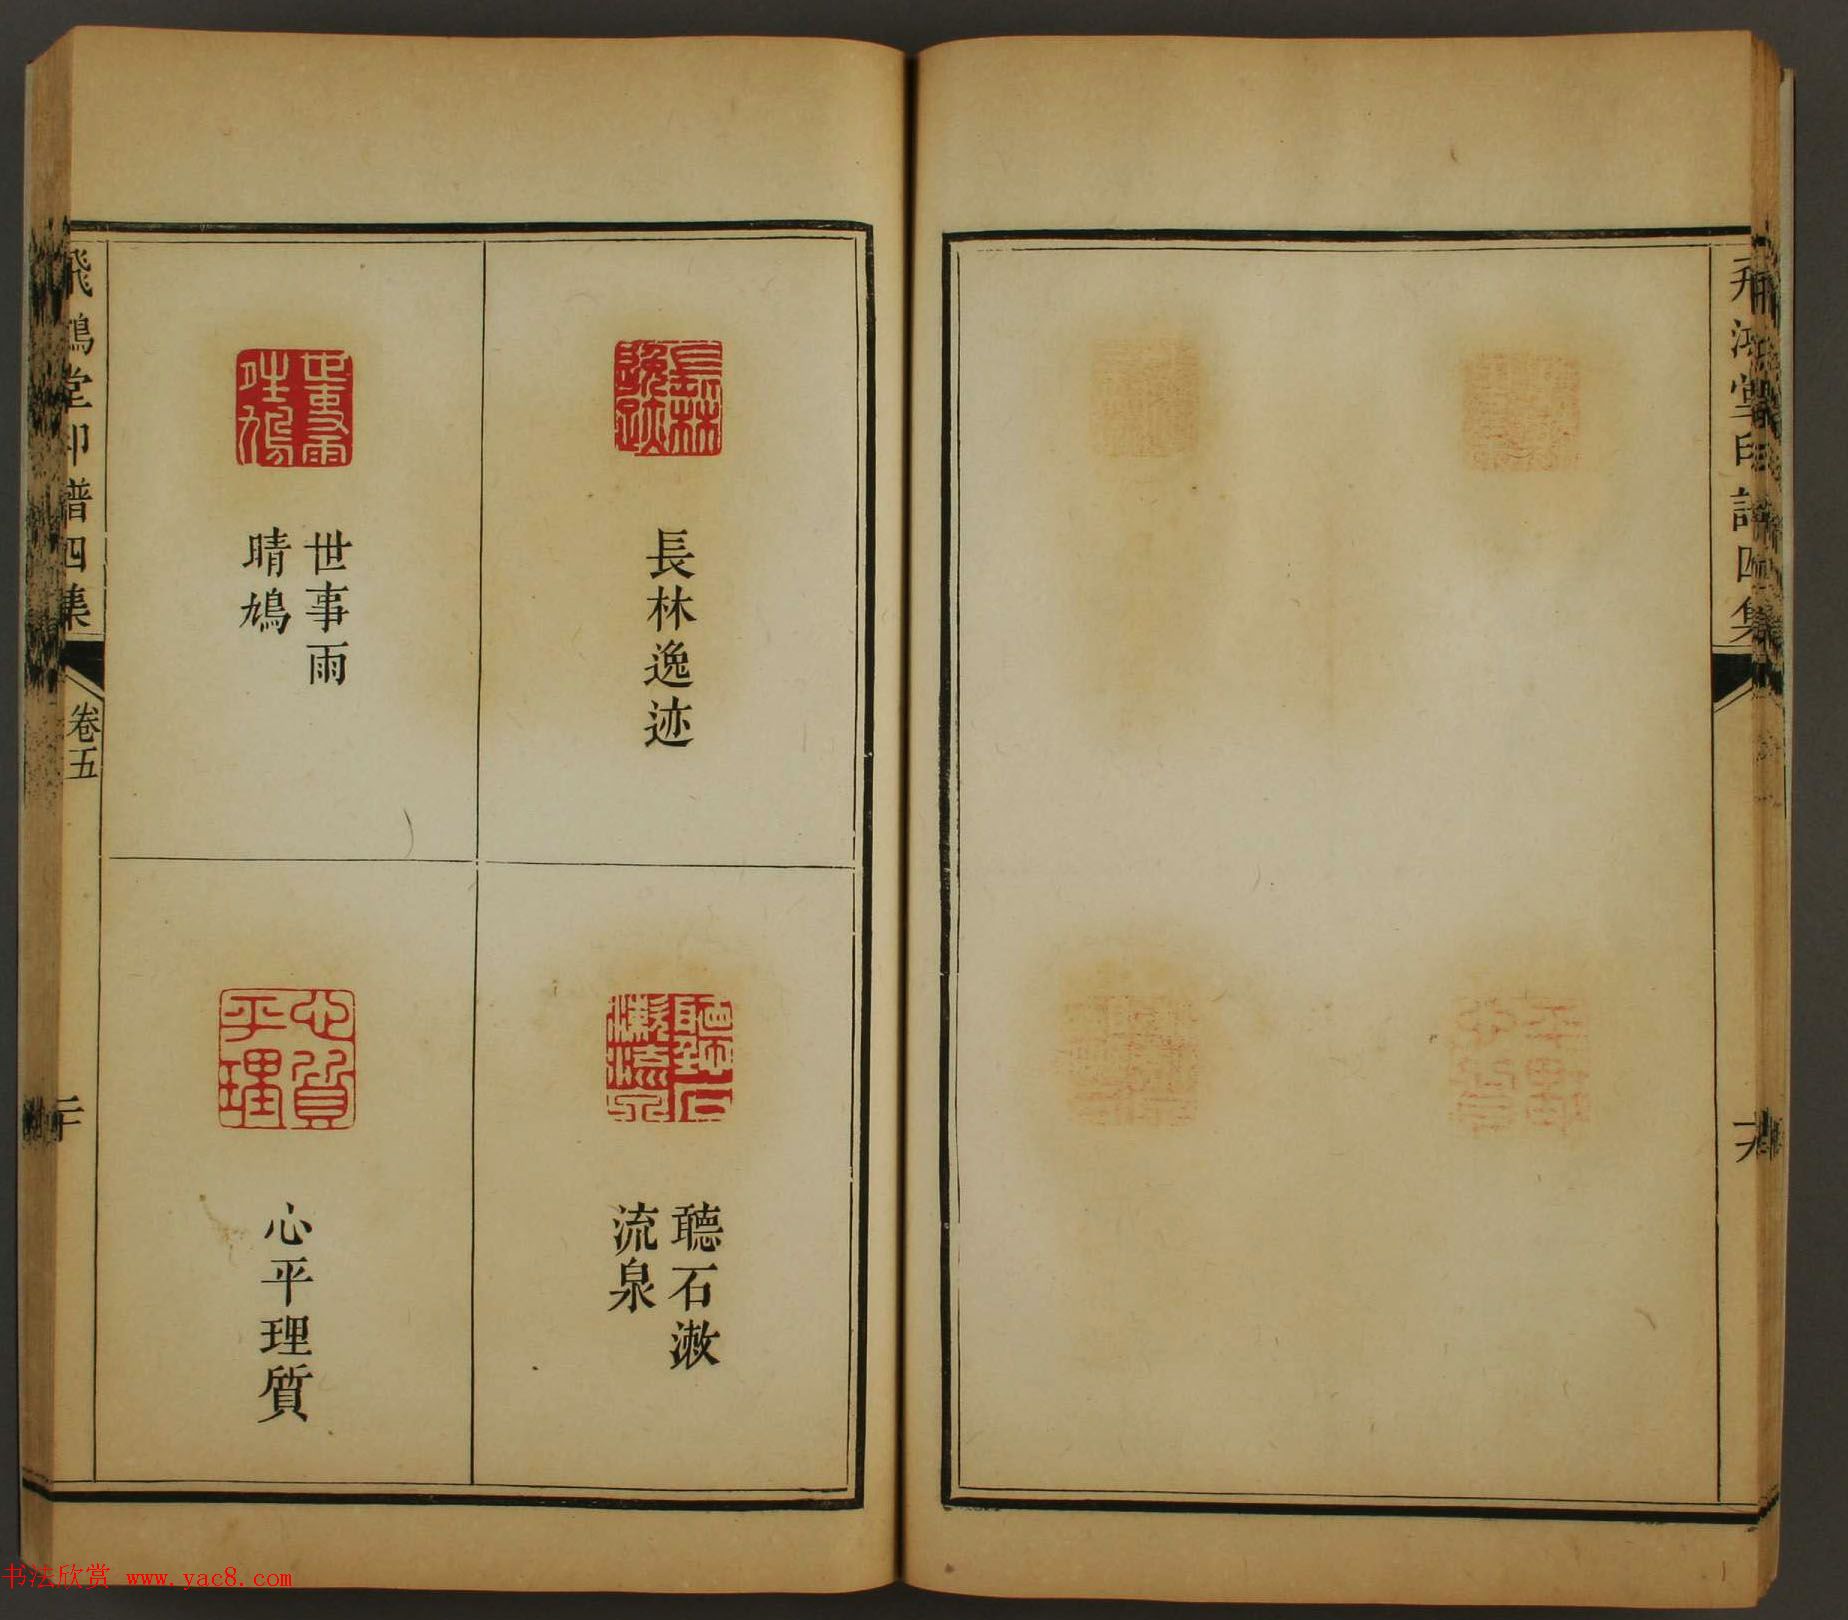 飛鴻堂印譜四集
長林逸迹
世事雨
晴鳩
聽石漱
流泉
心平理質
飛鴻堂印譜四集
卷五
二十
书法欣赏 www.yac8.com